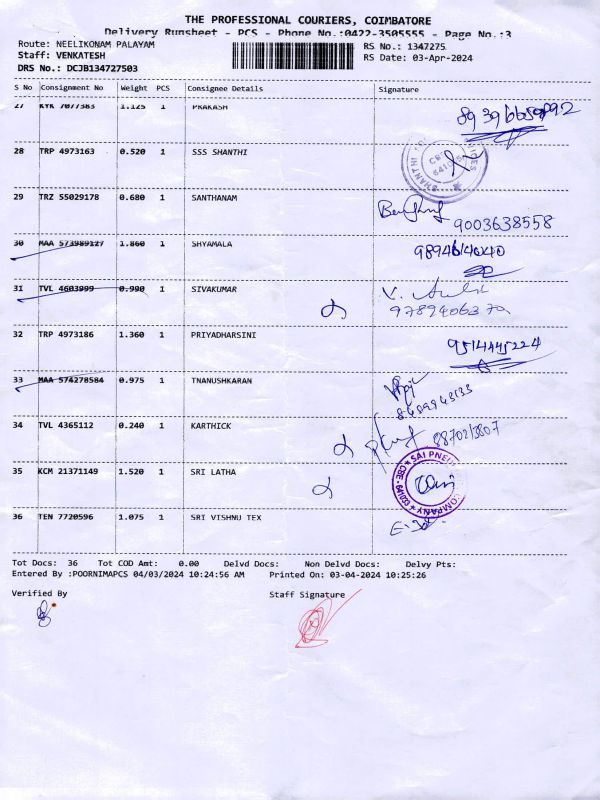 THE PROFESSIONAL COURIERS, COIMBATORE
Delivery Runsheet - PCS - Phone No.:0422-3505555 - Page No.:3
Route: NEELIKONAM PALAYAM
RS No.: 1347275
Staff: VENKATESH
RS Date: 03-Apr-2024
DRS No.: DCJB134727503
S No Consignment No Weight PCS Consignee Details Signature
27 KYK 7077383 1.125 1 PRAKASH
28 TRP 4973163 0.520 1 SSS SHANTHI
29 TRZ 55029178 0.680 1 SANTHANAM
9003638558
30 MAA 573989127 1.860 1 SHYAMALA
31 TVL 4603999 0.990 1 SIVAKUMAR
9789406370
32 TRP 4973186 1.360 1 PRIYADHARSINI
9514445224
33 MAA 574278584 0.975 1 TNANUSHKARAN
34 TVL 4365112 0.240 1 KARTHICK
35 KCM 21371149 1.520 1 SRI LATHA
36 TEN 7720596 1.075 1 SRI VISHNU TEX
Tot Docs: 36 Tot COD Amt: 0.00 Delvd Docs: Non Delvd Docs: Delvy Pts:
Entered By :POORNIMAPCS 04/03/2024 10:24:56 AM Printed On: 03-04-2024 10:25:26
Verified By Staff Signature